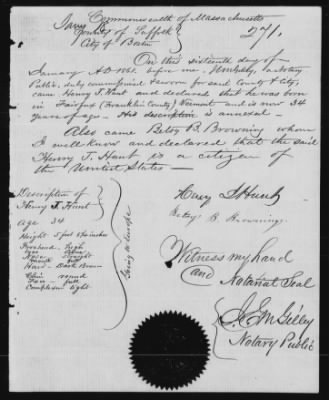 Commonwealth of Massachusetts
County of Suffolk
City of Boston
271.
On this sixteenth day of
January A.D. 1861. before me,
Public, duly commissioned & sworn for said County & City,
came Henry T. Hunt and declared that he was born
in Fairfax (Franklin County) Vermont and is now 34
years of age. His description is annexed.
Also came Betsy B. Browning whom
I well know and declared that the said
Henry T. Hunt is a citizen of
the United States
Description of
Henry T. Hunt
Age 34
Height 5 feet inches
Forehead high
Eyes
Nose straight
Mouth
Hair Dark Brown
Chin round
Face full
Complexion light
Going to Europe
Henry T Hunt
Betsey B. Browning
Witness my hand
and Notarial Seal
Notary Public